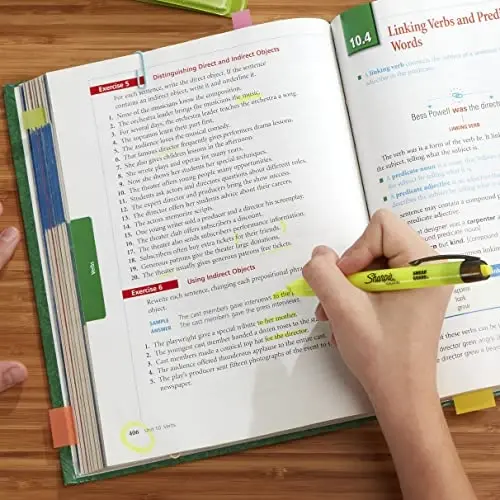 Exercise 5 Distinguishing Direct and Indirect Objects
For each sentence, write the direct object. If the sentence
contains an indirect object, write it and underline it.
1. None of the musicians know the composition.
2. The orchestra leader brings the musicians the music.
3. For several days, the orchestra leader teaches the orchestra a song.
4. The sopranos learn their part first.
5. The audience loves the musical comedy.
6. That famous director frequently gives performers drama lessons.
7. She also gives children lessons in the afternoon.
8. She wrote plays and operas for many years.
9. Now she shows her students her special techniques.
10. The theater offers young people many opportunities.
11. Students ask actors and directors questions about different roles.
12. The expert director and producers bring the show success.
13. The director offers her students advice about their careers.
14. The actors memorize scripts.
15. One young writer sold a producer and a director his screenplay.
16. The theater club offers subscribers a discount.
17. The theater also sends subscribers performance information.
18. Subscribers often buy extra tickets for their friends.
19. Generous patrons give the theater large donations.
20. The theater usually gives generous patrons free tickets.
Exercise 6 Using Indirect Objects
Rewrite each sentence, changing each prepositional phrase
object.
SAMPLE The cast members gave interviews to the
ANSWER The cast members gave the press interviews
1. The playwright gave a special tribute to her mother.
2. The youngest cast member handed a dozen roses to the
3. Cast members made a comical top hat for the director.
4. The audience offered thunderous applause to the entire
5. The play's producer sent fifteen photographs of the event to
newspaper.
406 Unit 10 Verbs
Verbs
10.4 Linking Verbs and Predi
Words
A linking verb connects the subject of a sentence
adjective in the predicate.
Bess Powell was the
LINKING VERB
The verb was is a form of the verb be. It link
the subject, telling what the subject is.
A predicate noun
the subject. It tells what the subject is.
A predicate adjective
describes the subject by telling what it
sentence may contain a compound
predicate adjective.
designer was a carpenter
und predicate noun]
kind. [Compound
Sharpie
SMEAR GUARD
look
grow
of these verbs can be
director grew angry.
director grew a beard